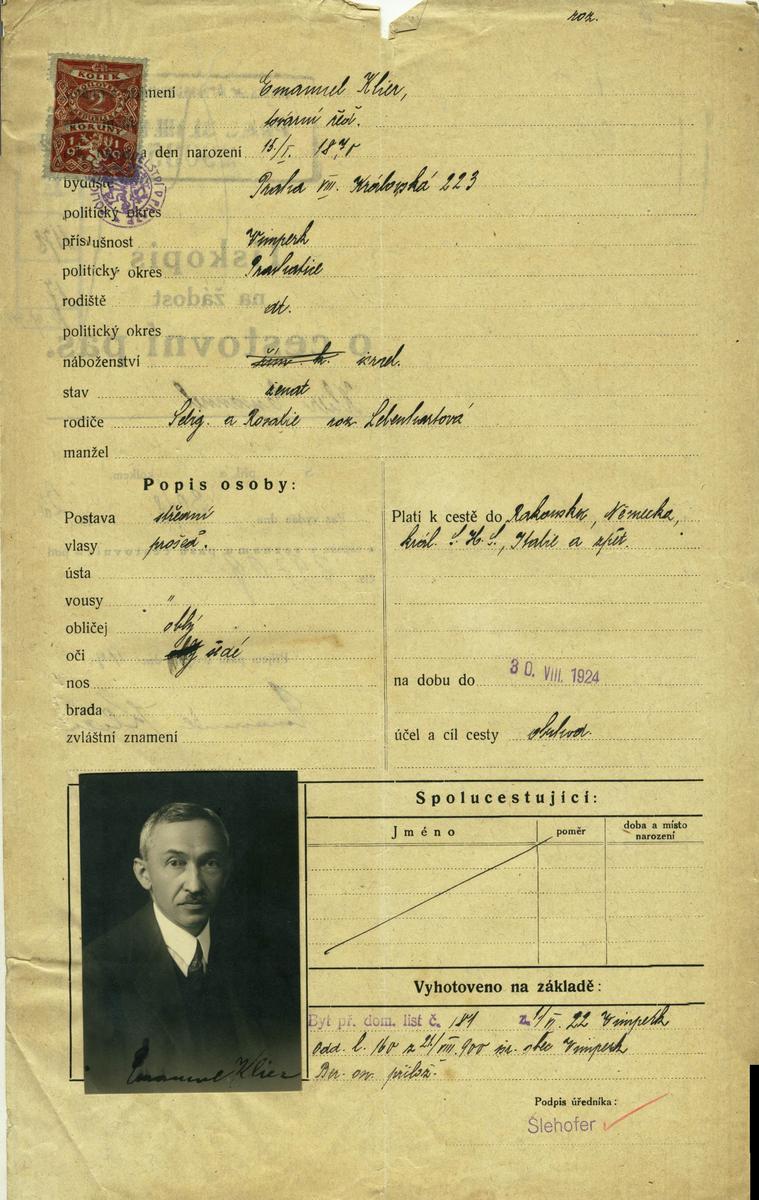 roz.
KOLEK
2
KORUNY
1919
jmení Emanuel Klier,
tovární řed.
a den narození 15/I. 1870
bydliště Praha VII. Královská 223
politický okres
příslušnost Vimperk
politický okres Prachatice
rodiště dt.
politický okres
náboženství israel.
stav ženat
rodiče Selig. a Rosalie roz Lebenhartová
manžel
Popis osoby:
Postava střední
vlasy prošed.
ústa
vousy "
obličej oblý
oči šedé
nos
brada
zvláštní znamení
Platí k cestě do Rakouska, Německa,
král. S.H.S., Italie a zpět.
na dobu do 30. VIII. 1924
účel a cíl cesty obchod.
Emanuel Klier
Spolucestující:
Jméno poměr doba a místo narození
Vyhotoveno na základě:
Byt př. dom. list č. 184 z. 1/VI. 22 Vimperk
odd. l. 160 z 21/VIII. 900 obec Vimperk
Ber. on.
Podpis úředníka:
Slehofer